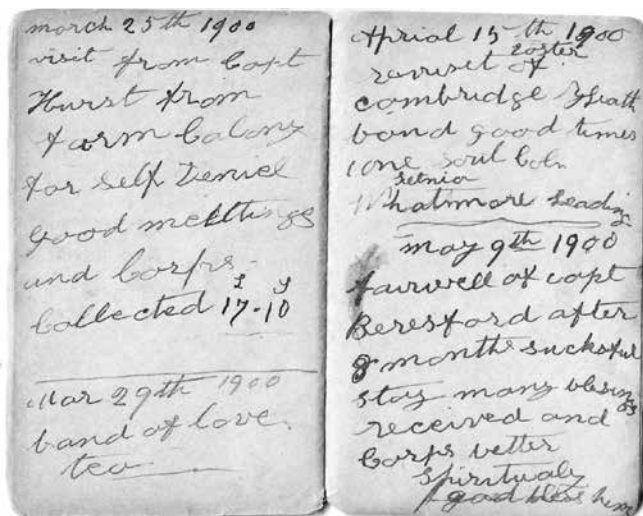 march 25th 1900
visit from Capt
Hurst from
farm Colony
for self Deniel
good melttings
and Corps.
£ s
Collected 17-10
Mar 29th 1900
band of love.
tea
Aprial 15th 1900
Easter
revuset of
cambridge Heath
band good times
1 one soul
Setnior
Whatmore leading
may 9th 1900
fairwell of capt
Beresford after
8 months suckesful
stay many blesings
received and
Corps better
spiritualy
god bless him